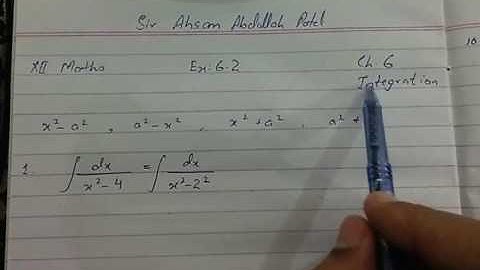 Sir Ahsan Abdullah Patel
XII Maths Ex:6.2 Ch. 6
Integration
x²-a² , a²-x² , x²+a² , a²
1. ∫ dx/(x²-4) = ∫ dx/(x²-2²)